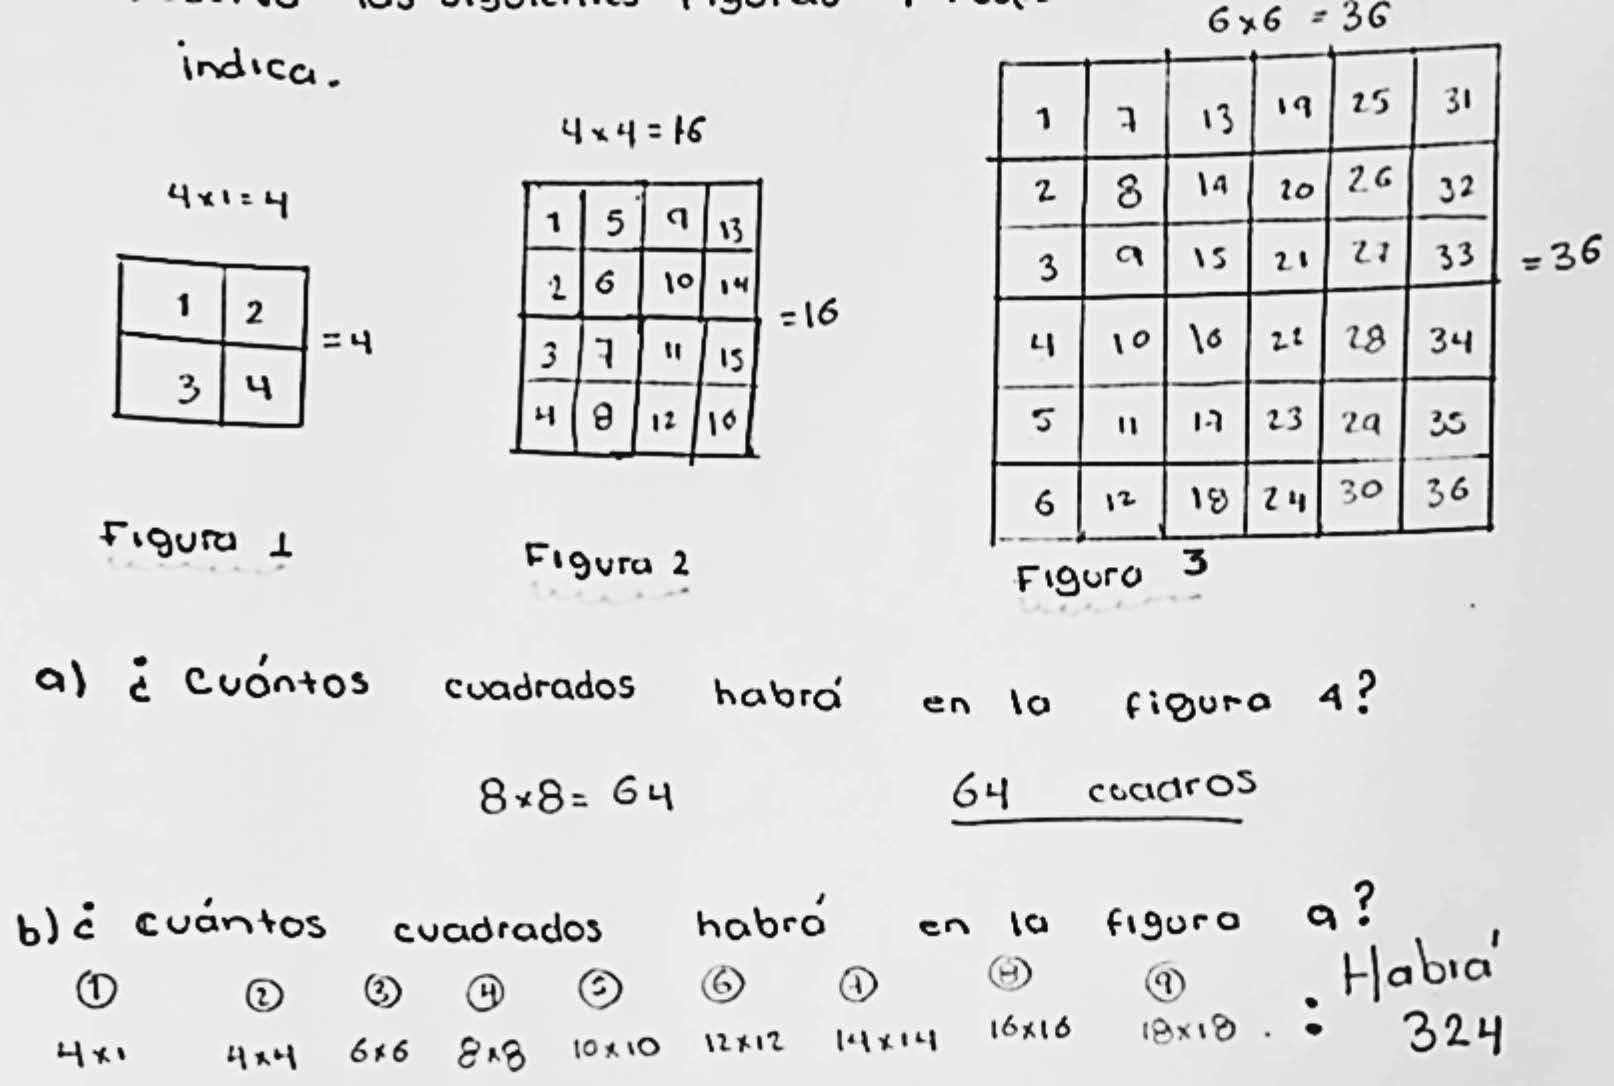 indica.
4x1=4
1 2
3 4
=4
Figura 1
4x4=16
1 5 9 13
2 6 10 14
3 7 11 15
4 8 12 16
=16
Figura 2
6x6=36
1 7 13 19 25 31
2 8 14 20 26 32
3 9 15 21 27 33
4 10 16 22 28 34
5 11 17 23 29 35
6 12 18 24 30 36
=36
Figura 3
a) ¿ cuántos cuadrados habrá en la figura 4?
8x8= 64 64 cuadros
b) ¿ cuántos cuadrados habrá en la figura 9?
1 2 3 4 5 6 7 8 9
4x1 4x4 6x6 8x8 10x10 12x12 14x14 16x16 18x18 . : Habrá
324